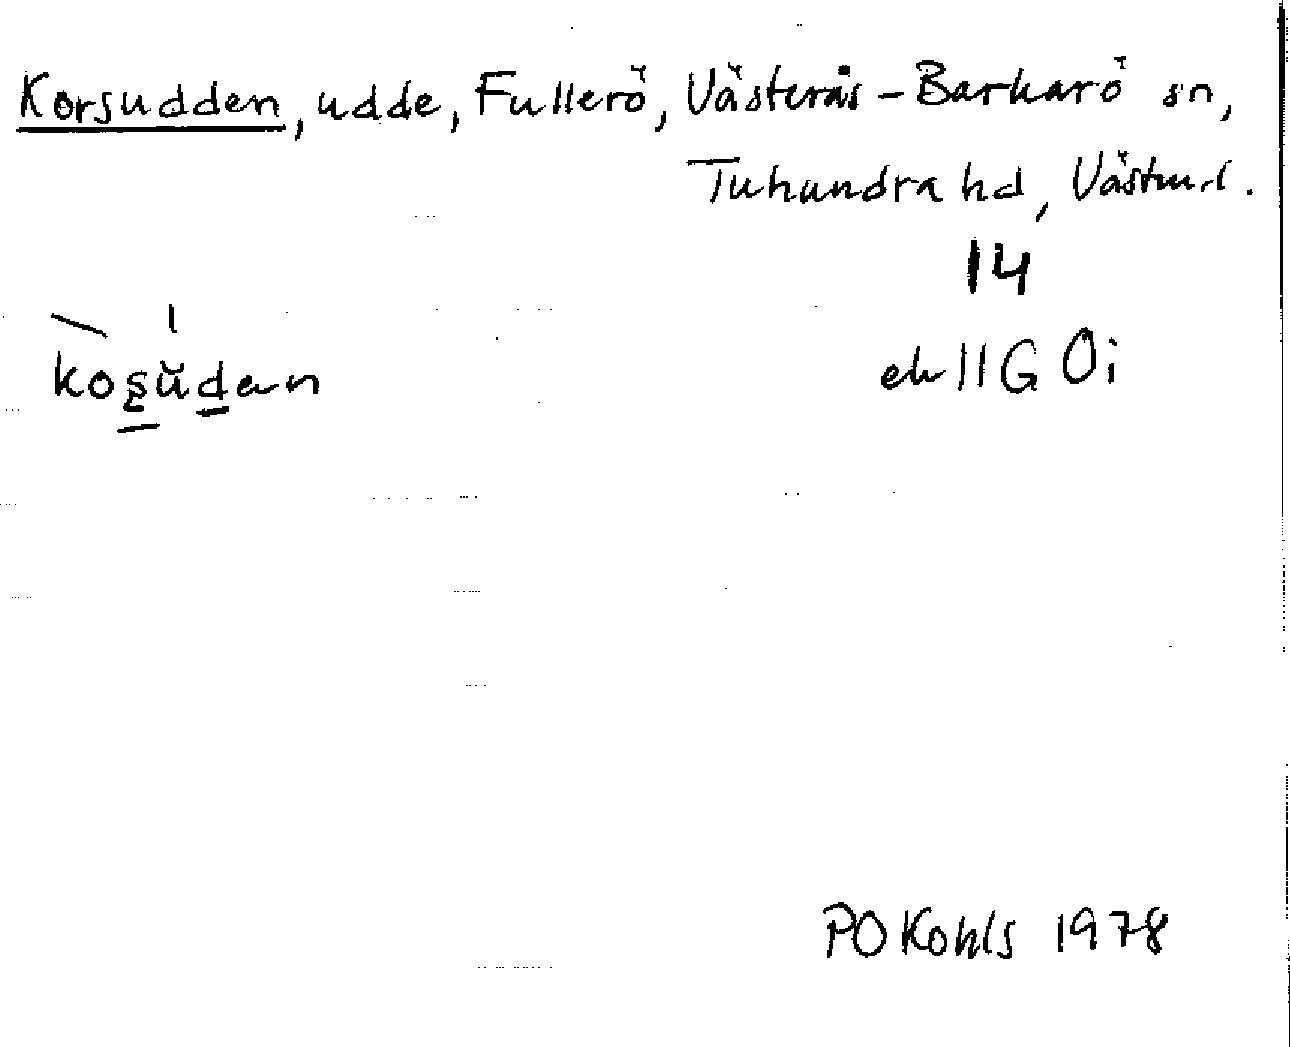 Korsudden, udde, Fullerö, Västerås-Barkarö sn,
Tuhundra hd, Västml.
14
koşŭdan
ek 11G 0i
PO Kohls 1978